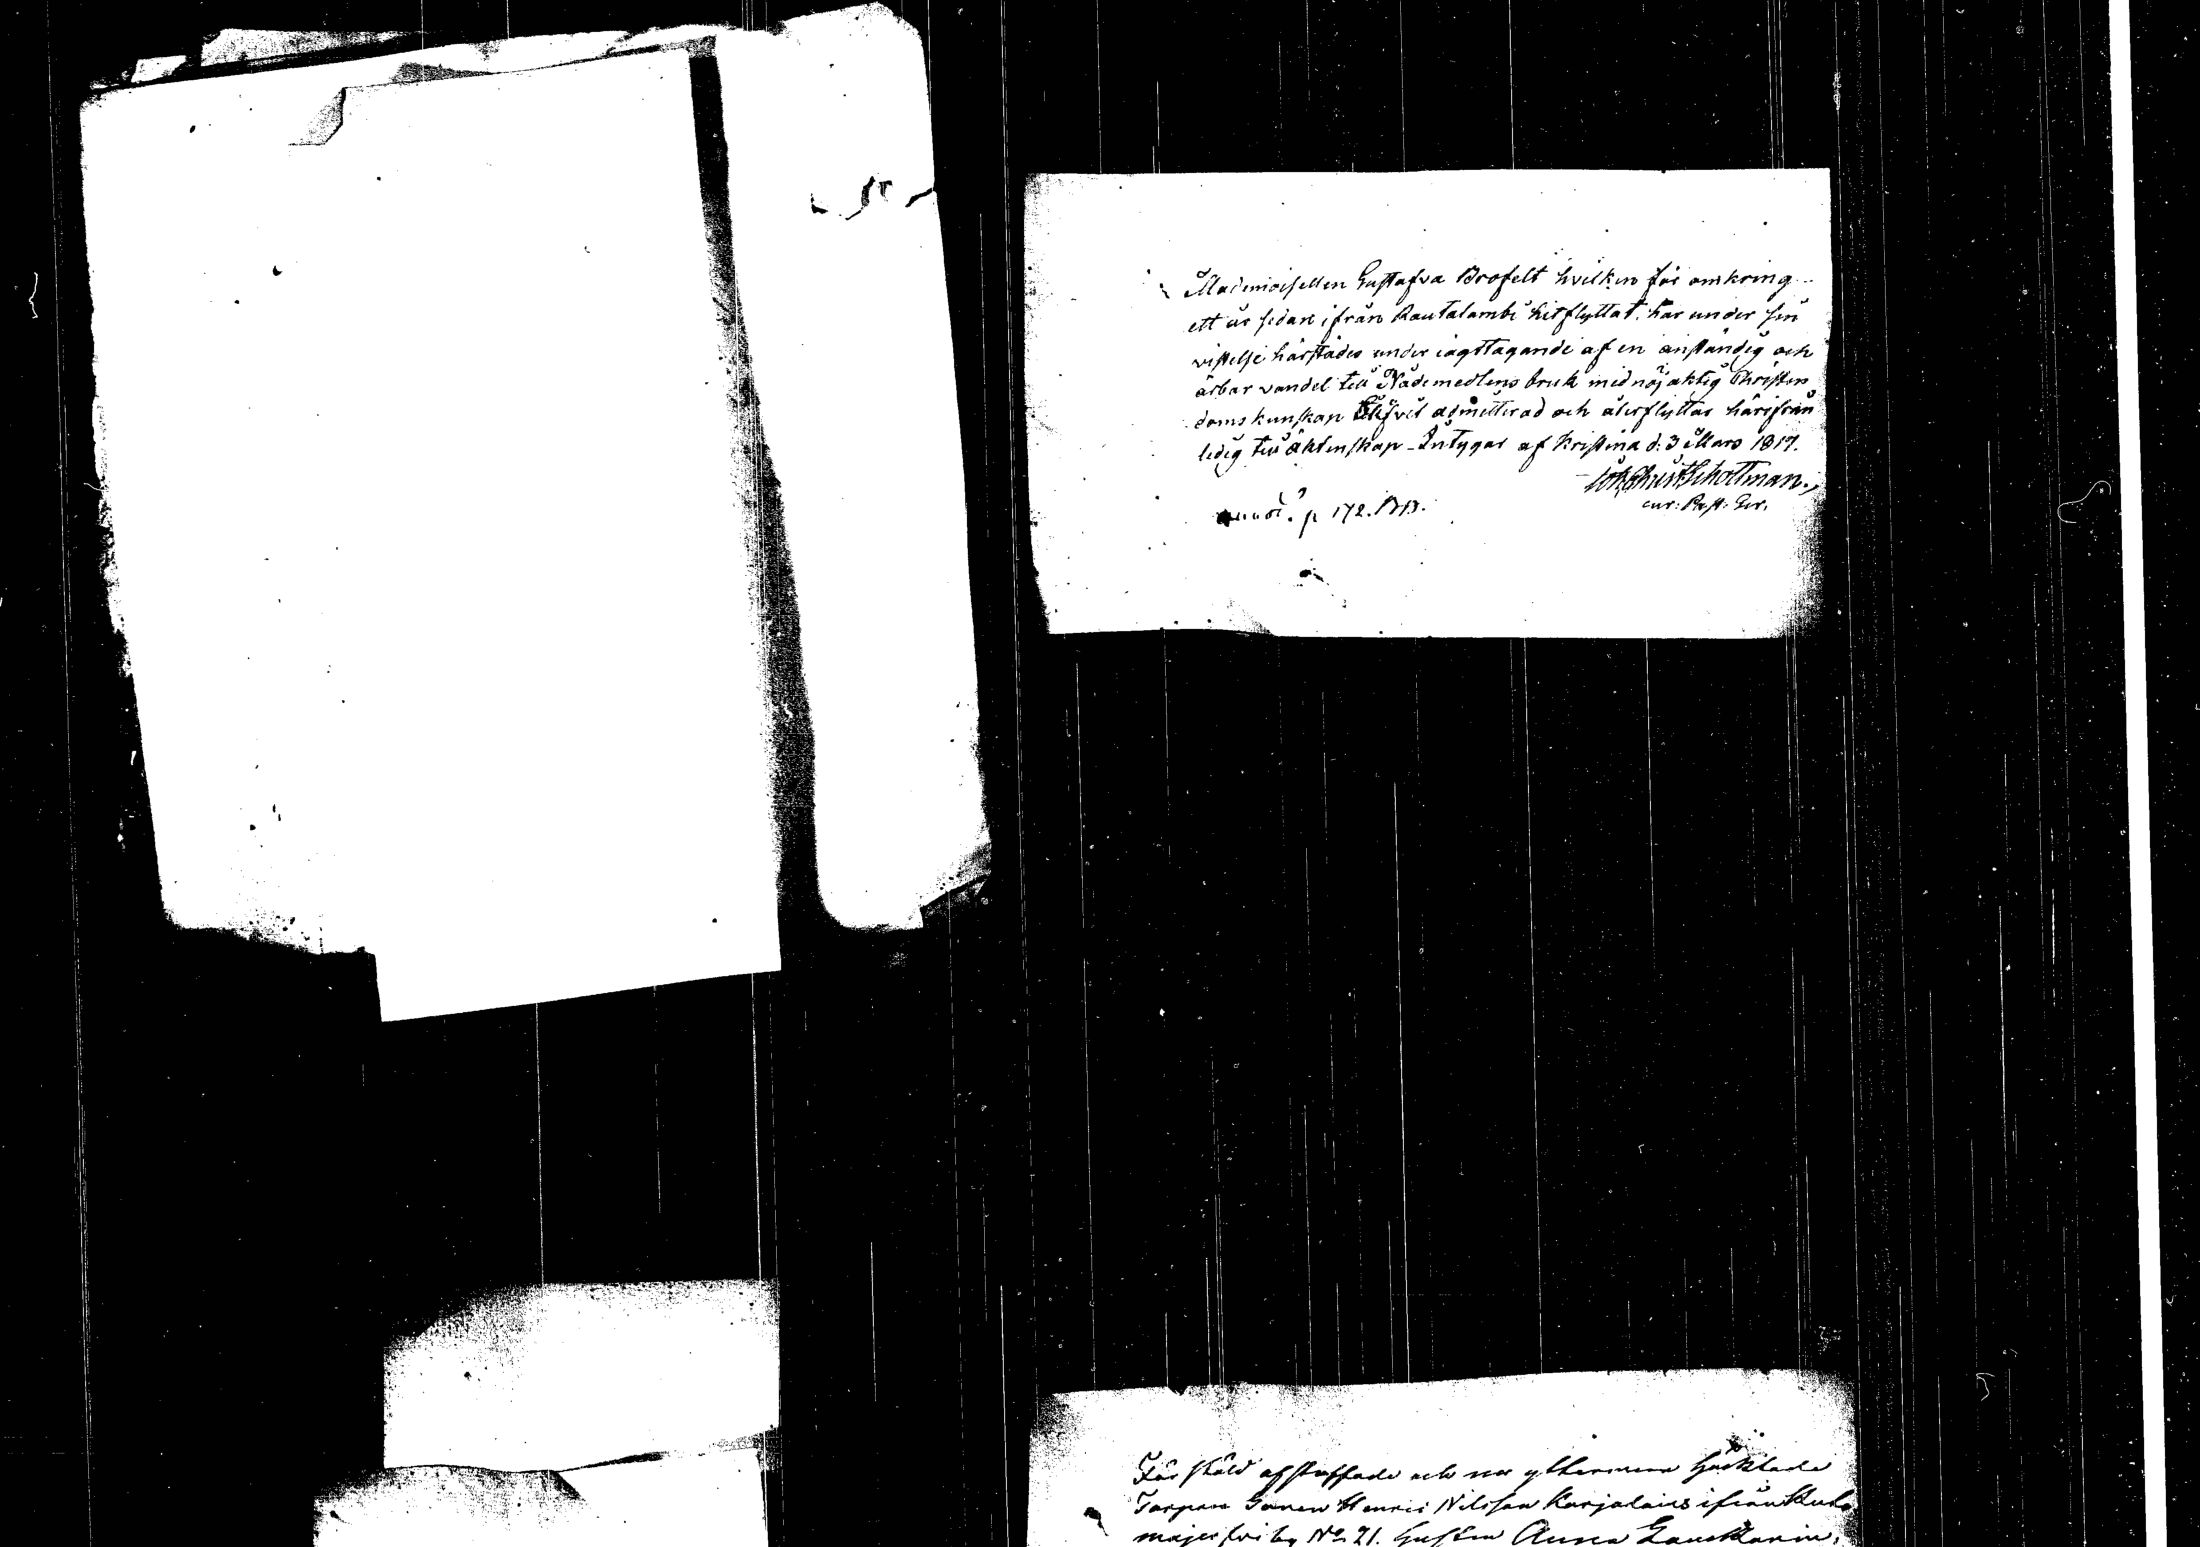 Mademoisellen Gustafva Brofelt hvilken för omkring
ett år sedan ifrån Rautalambi hitflyttat, har under sin
vistelse härstädes under iagttagande af en anständig och
ärbar vandel till Nådemedlens bruk med nöjaktig Christen
doms kunskap blifvit admitterad och återflyttar härifrån
ledig till äktenskap. Intygar af Kristina d: 3 Mars 1817.
Joh Christ Schottman.
cur: Past: Ger.
p 172.
För stöld afstraffade och nu yttermera häktade
Torpare Sonen Henric Nilsson Karjalain ifrån
by No 21. Hustru Anna